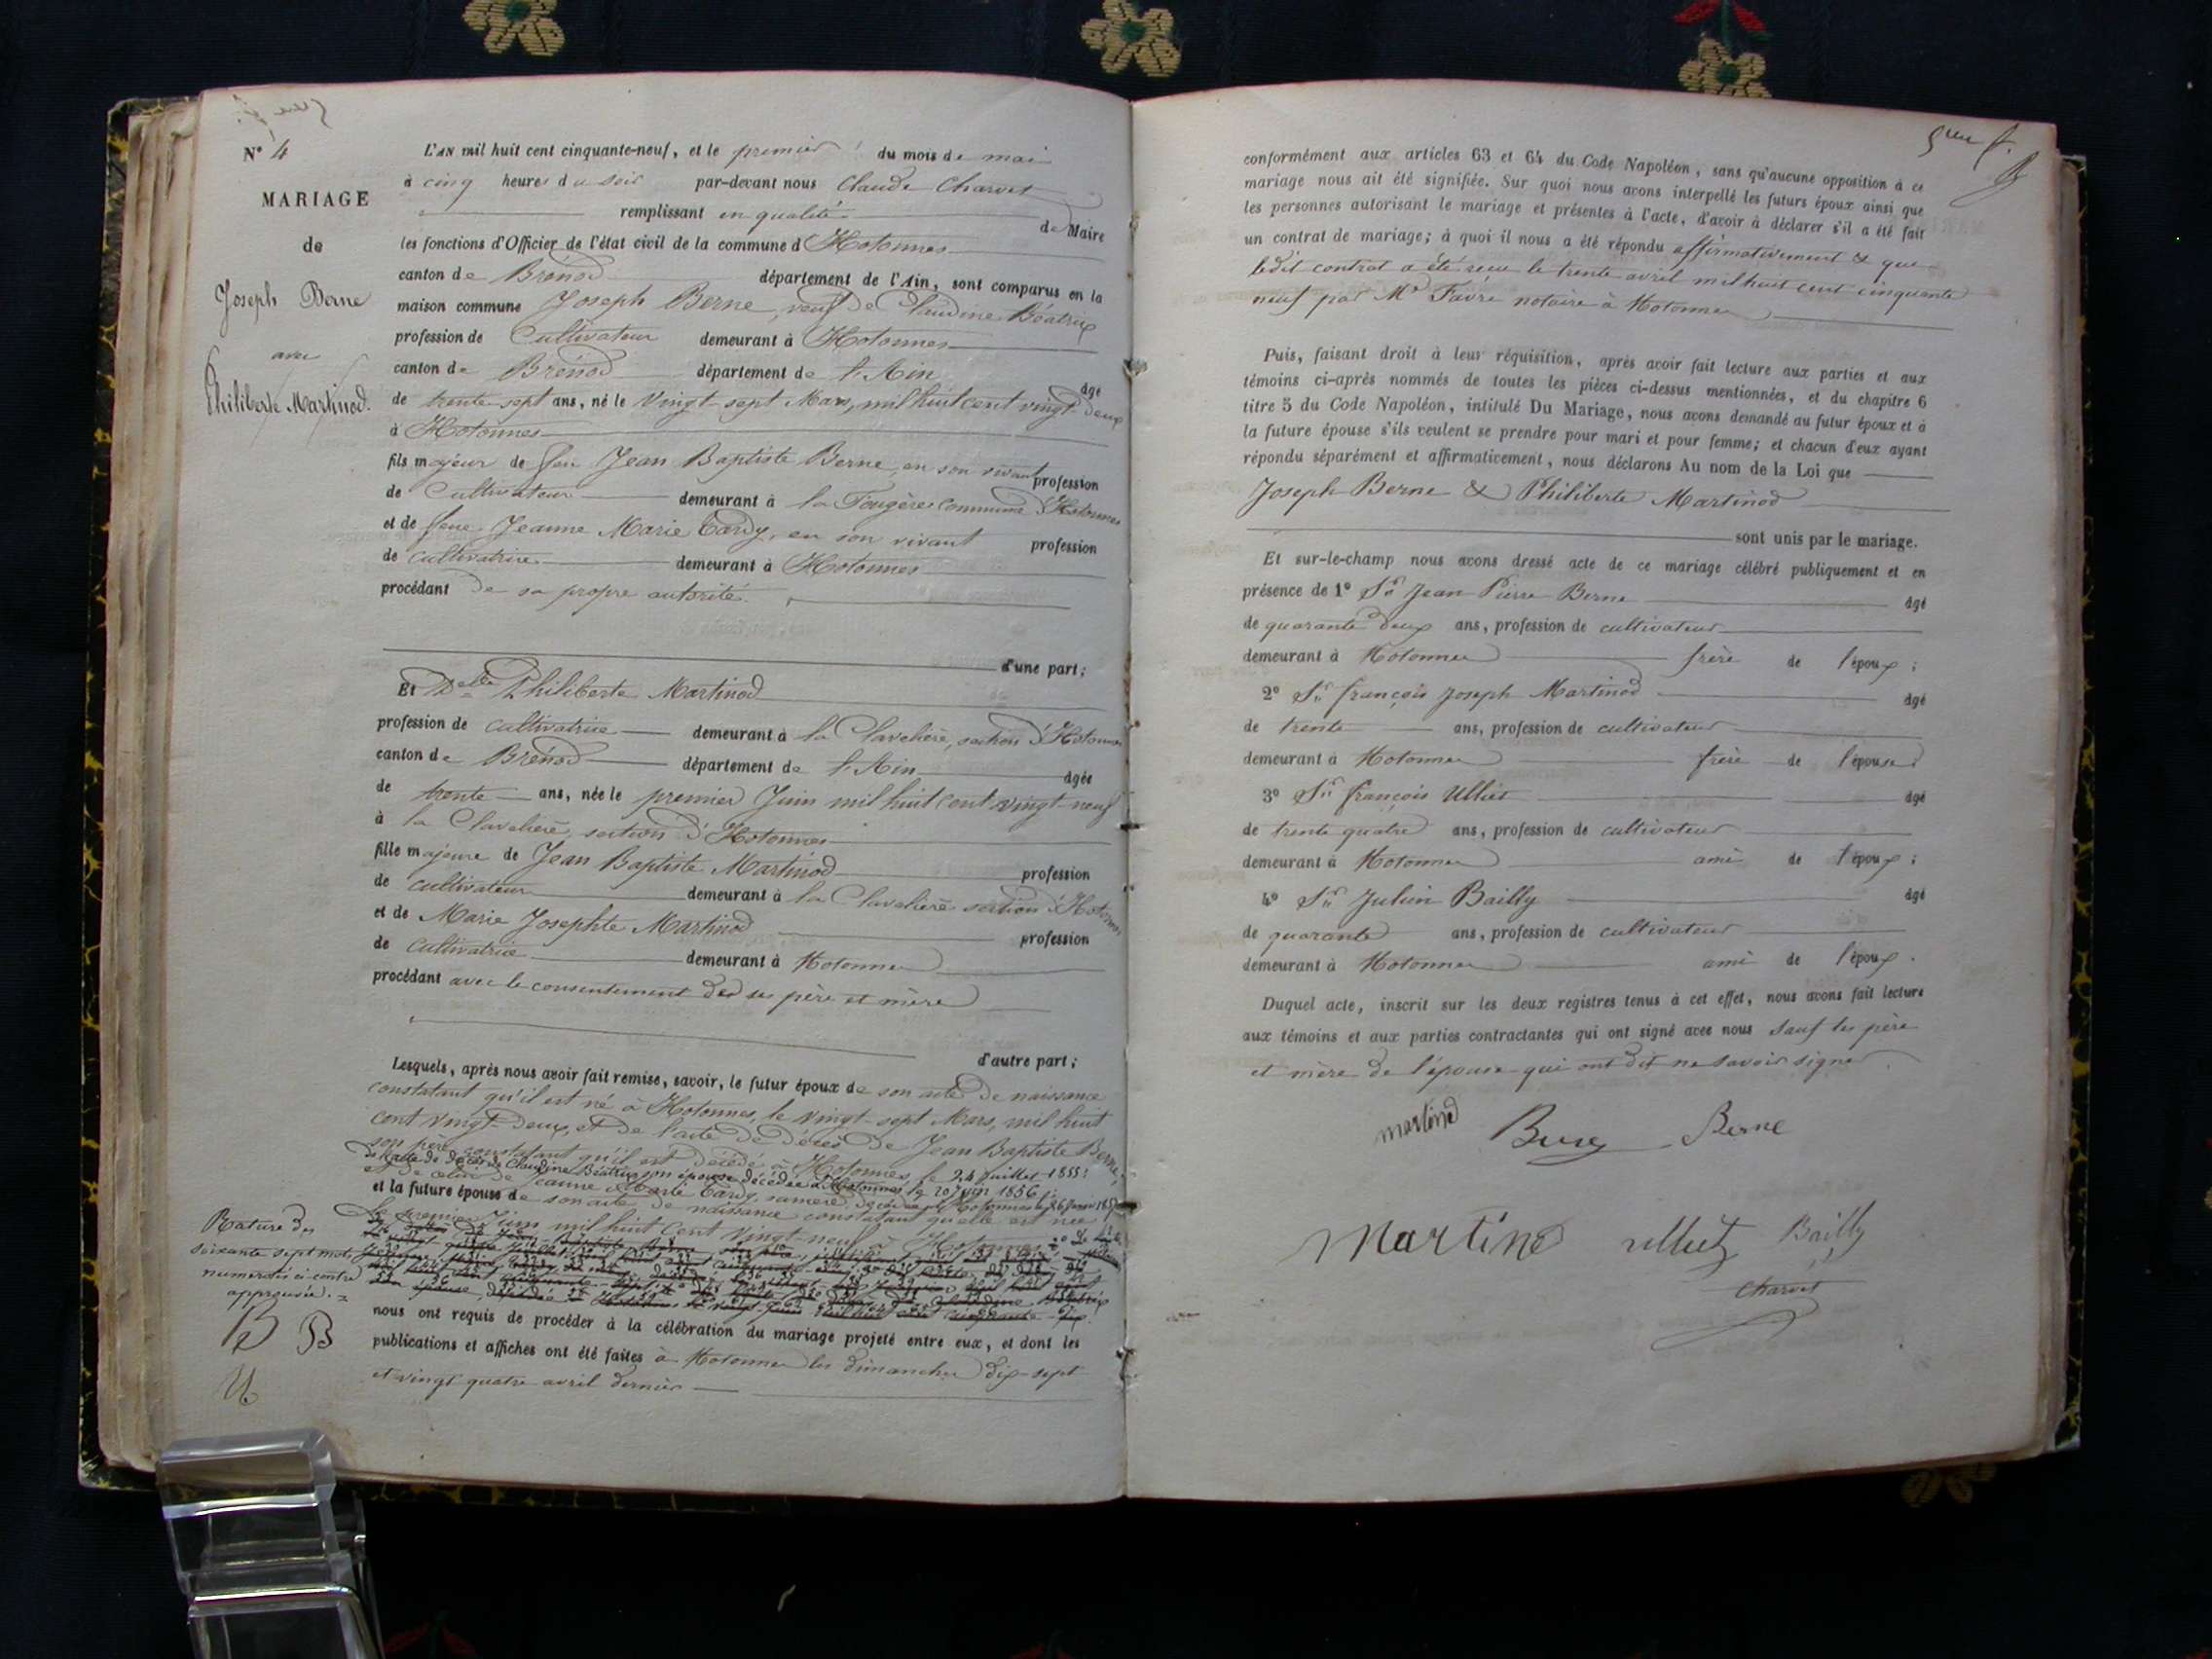 N° 4
MARIAGE
de
Joseph Berne
avec
Philiberte Martinod.
L'AN mil huit cent cinquante-neuf, et le premier du mois de mai
à cinq heures du soir par-devant nous Claude Charvet
remplissant en qualité de Maire
les fonctions d'Officier de l'état civil de la commune d'Hotonnes
canton de Brénod département de l'Ain, sont comparus en la
maison commune Joseph Berne, veuf de Claudine Béatrix
profession de Cultivateur demeurant à Hotonnes
canton de Brénod département de l'Ain âgé
de trente-sept ans, né le Vingt-sept Mars, mil huit cent vingt-deux
à Hotonnes
fils majeur de feu Jean Baptiste Berne, en son vivant profession
de Cultivateur demeurant à la Fougère commune d'Hotonnes
et de feue Jeanne Marie Tardy, en son vivant profession
de cultivatrice demeurant à Hotonnes
procédant de sa propre autorité.
d'une part;
Et Delle Philiberte Martinod
profession de cultivatrice demeurant à la Clavelière, section d'Hotonnes
canton de Brénod département de l'Ain âgée
de trente ans, née le premier Juin mil huit cent vingt-neuf
à la Clavelière, section d'Hotonnes
fille majeure de Jean Baptiste Martinod profession
de cultivateur demeurant à la Clavelière section d'Hotonnes
et de Marie Josephte Martinod profession
de cultivatrice demeurant à Hotonnes
procédant avec le consentement de ses père et mère
d'autre part;
Lesquels, après nous avoir fait remise, savoir, le futur époux de son acte de naissance
constatant qu'il est né à Hotonnes, le vingt-sept Mars, mil huit
cent vingt-deux, et de l'acte de décès de Jean Baptiste Berne,
son père constatant qu'il est décédé à Hotonnes, le 24 Juillet 1855;
de l'acte de décès de Claudine Béatrix son épouse décédée à Hotonnes le 20 Juin 1856;
et de celui de Jeanne Marie Tardy, sa mère, décédée à Hotonnes le 26
et la future épouse de son acte de naissance constatant qu'elle est née
le premier Juin mil huit cent vingt-neuf à Hotonnes
Rature des
soixante sept mots
numérotés ci-contre
approuvée.
B B
U
nous ont requis de procéder à la célébration du mariage projeté entre eux, et dont les
publications et affiches ont été faites à Hotonnes les dimanches dix-sept
et vingt quatre avril dernier
5me f.
conformément aux articles 63 et 64 du Code Napoléon, sans qu'aucune opposition à ce
mariage nous ait été signifiée. Sur quoi nous avons interpellé les futurs époux ainsi que
les personnes autorisant le mariage et présentes à l'acte, d'avoir à déclarer s'il a été fait
un contrat de mariage; à quoi il nous a été répondu affirmativement & que
ledit contrat a été reçu le trente avril mil huit cent cinquante
neuf par Me Favre notaire à Hotonnes
Puis, faisant droit à leur réquisition, après avoir fait lecture aux parties et aux
témoins ci-après nommés de toutes les pièces ci-dessus mentionnées, et du chapitre 6
titre 5 du Code Napoléon, intitulé Du Mariage, nous avons demandé au futur époux et à
la future épouse s'ils veulent se prendre pour mari et pour femme; et chacun d'eux ayant
répondu séparément et affirmativement, nous déclarons Au nom de la Loi que
Joseph Berne & Philiberte Martinod
sont unis par le mariage.
Et sur-le-champ nous avons dressé acte de ce mariage célébré publiquement et en
présence de 1° Sr Jean Pierre Berne âgé
de quarante deux ans, profession de cultivateur
demeurant à Hotonnes frère de l'époux;
2° Sr françois Joseph Martinod âgé
de trente ans, profession de cultivateur
demeurant à Hotonnes frère de l'épouse;
3° Sr françois Ulliet âgé
de trente quatre ans, profession de cultivateur
demeurant à Hotonnes ami de l'époux;
4° Sr Julien Bailly âgé
de quarante ans, profession de cultivateur
demeurant à Hotonnes ami de l'époux.
Duquel acte, inscrit sur les deux registres tenus à cet effet, nous avons fait lecture
aux témoins et aux parties contractantes qui ont signé avec nous sauf les père
et mère de l'épouse qui ont dit ne savoir signer
martind Berne
Martinod ulliet Bailly
Charvet